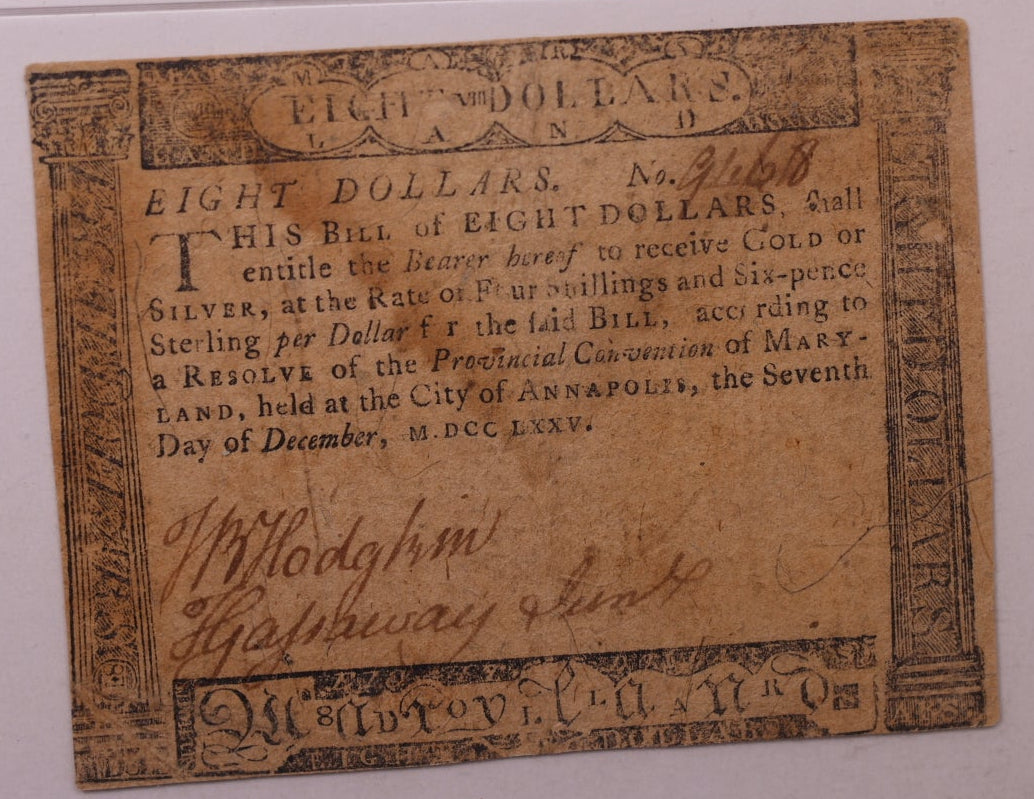 M A R Y
EIGHT VIII DOLLARS.
L A N D
EIGHT DOLLARS. No. 9468
THIS BILL of EIGHT DOLLARS, ſhall
entitle the Bearer hereof to receive GOLD or
SILVER, at the Rate of Four Shillings and Six-pence
Sterling per Dollar f r the ſaid BILL, according to
a RESOLVE of the Provincial Convention of MARY-
LAND, held at the City of ANNAPOLIS, the Seventh
Day of December, M.DCC LXXV.
JR Hodgkin
Gaſsaway
EIGHT DOLLARS